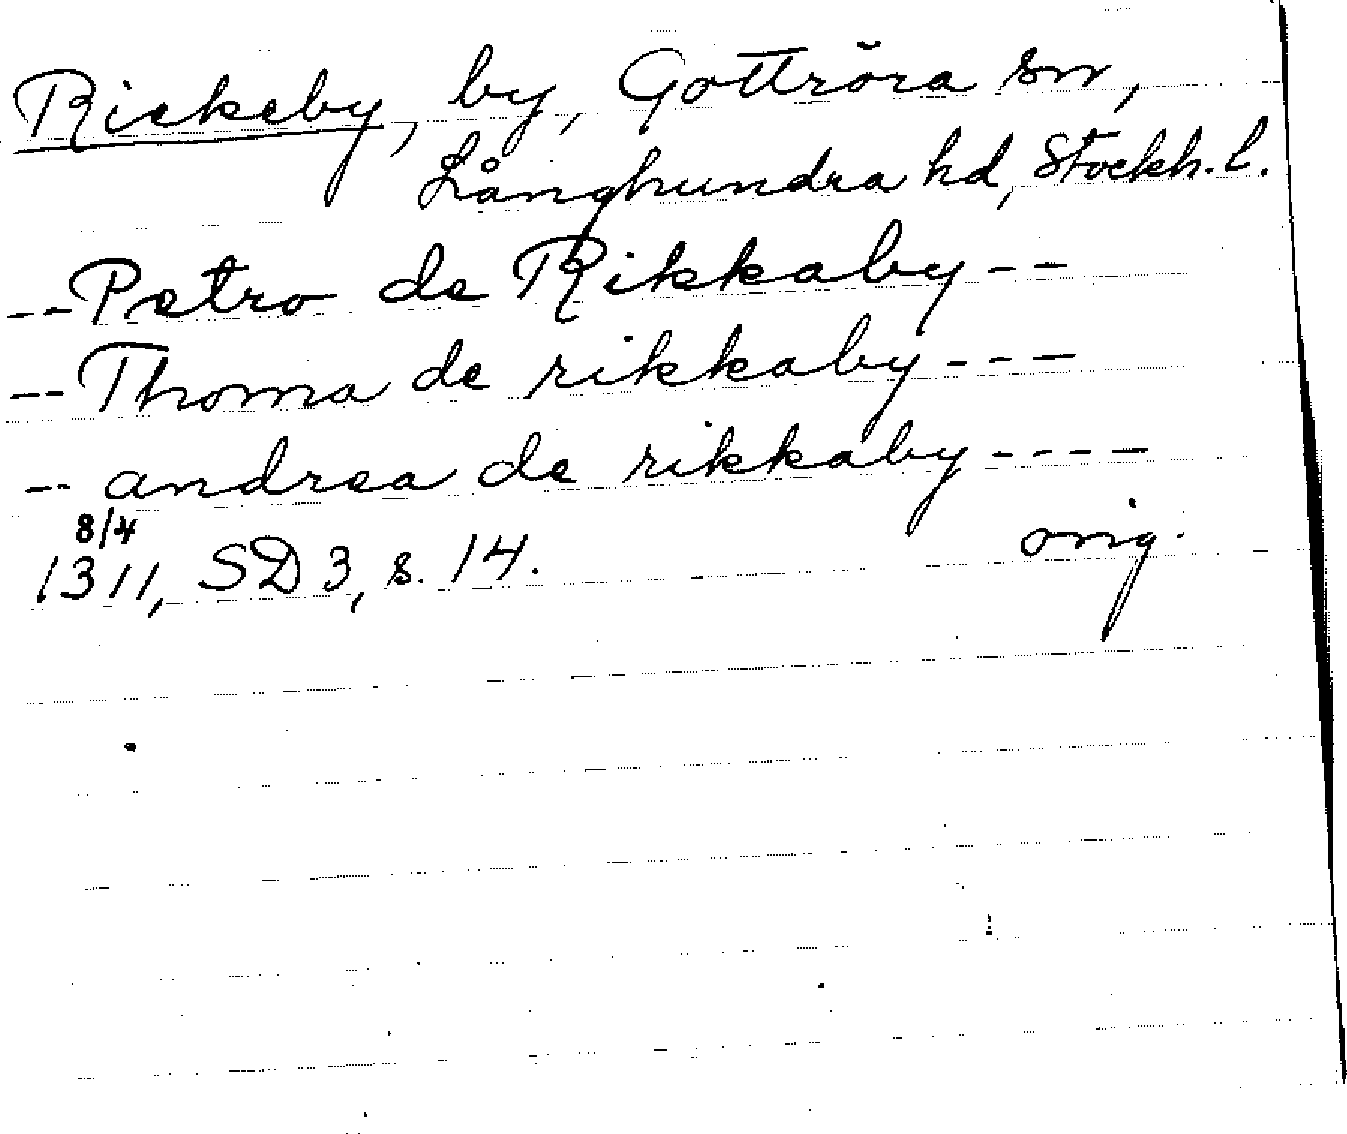 Rickeby, by, Gottröra sn,
Långhundra hd, Stockh. l.
--Petro de Rikkaby--
--Thoma de rikkaby---
-- andrea de rikkaby----
8/4
1311, SD 3, s. 14. orig.